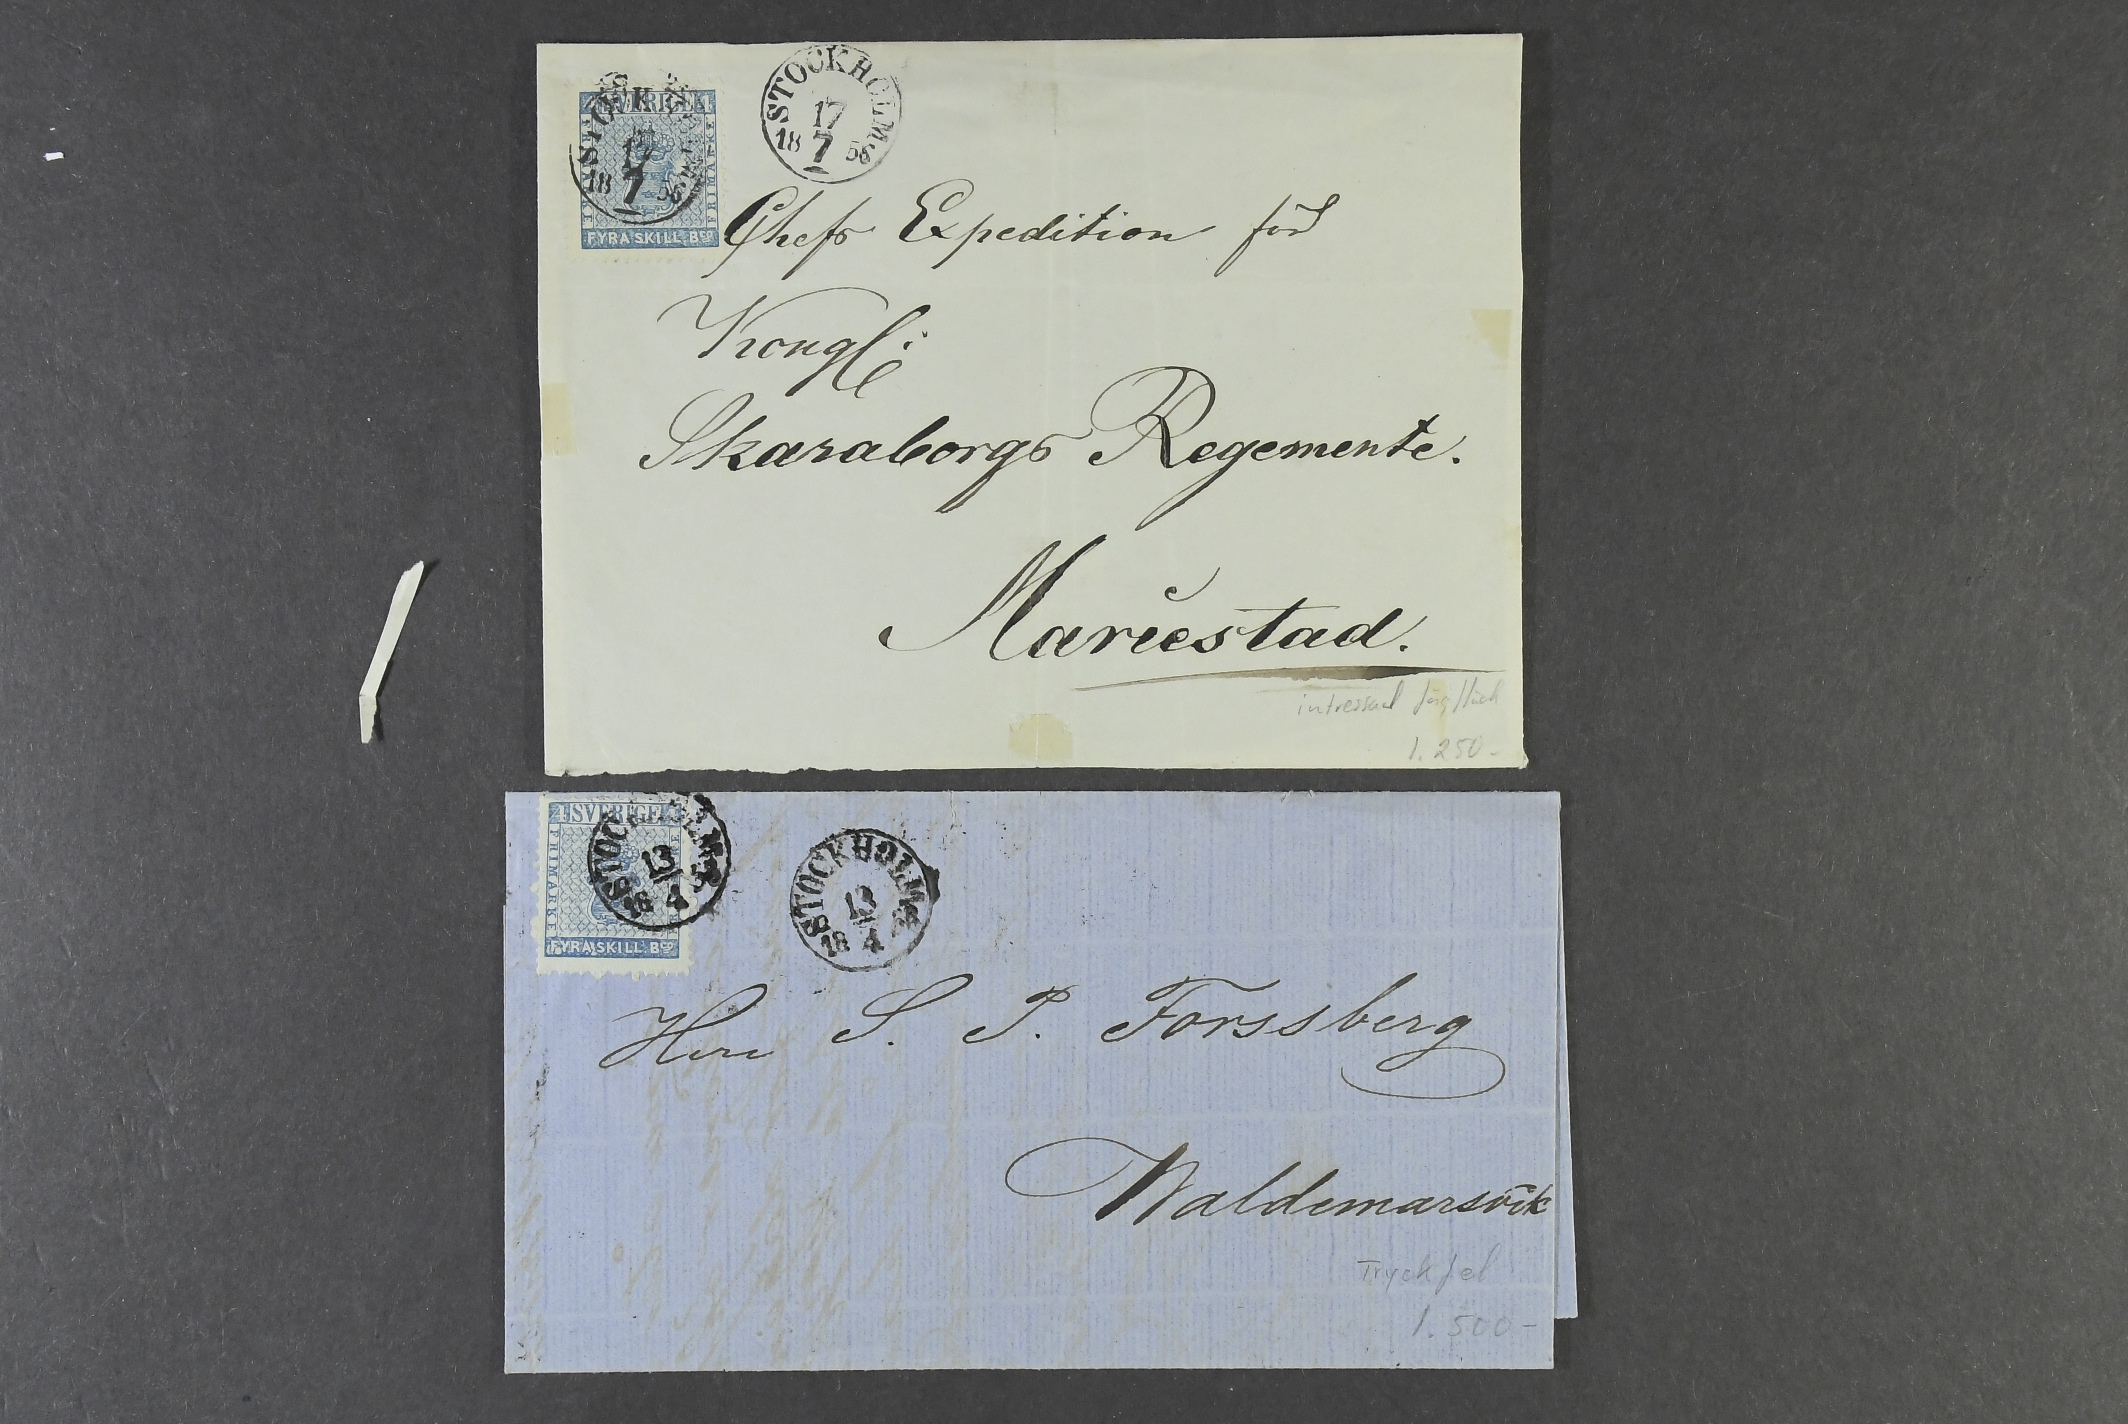 4 SVERIGE 4
FRIMARKE
FYRA SKILL. Bco
STOCKHOLM
17
18 7 56
STOCKHOLM
17
18 7 56
Chefs Expedition för
Kongl:
Skaraborgs Regemente.
Mariestad.
intressant
1.250-
4 SVERIGE
FRIMARKE
FYRA SKILL. Bco
STOCKHOLM
13
18 4
STOCKHOLM
13
18 4
Herr S. P. Forssberg
Waldemarsvik
Tryckfel
1.500-